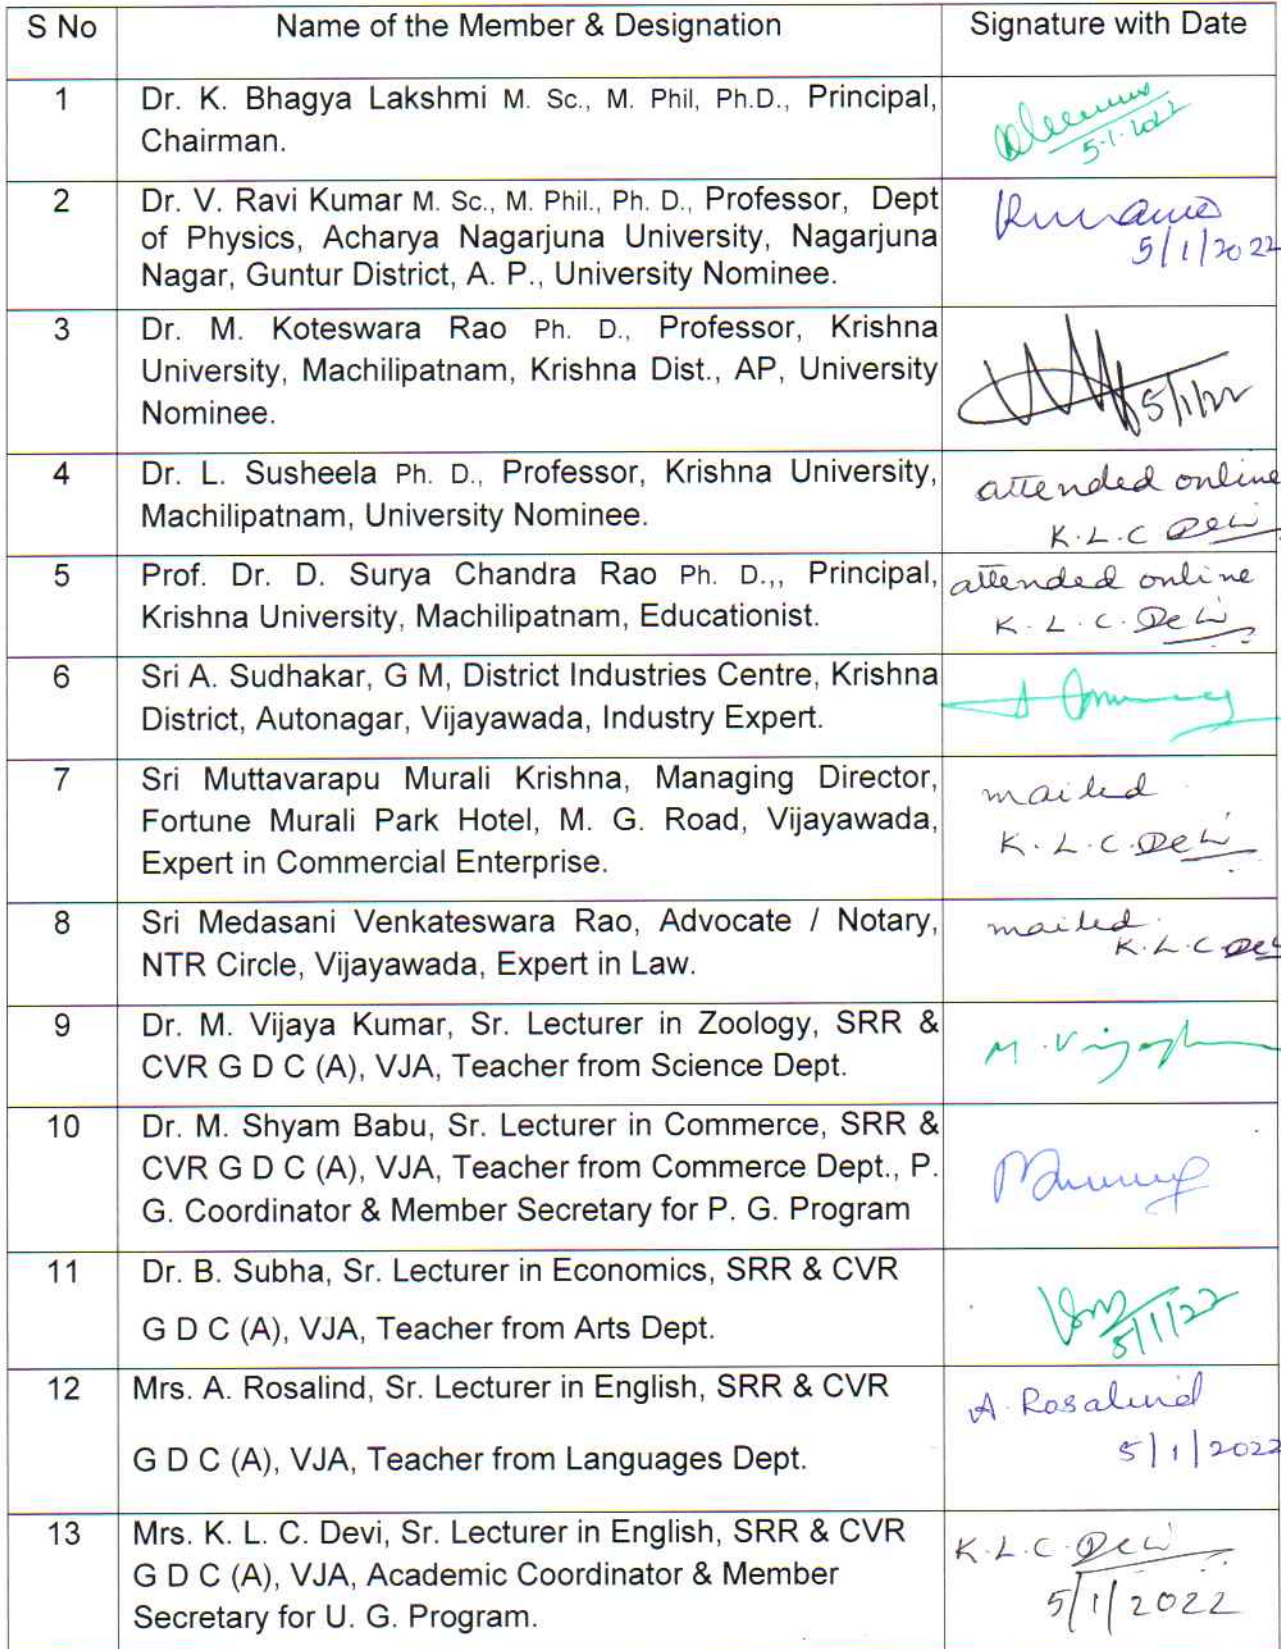 S No Name of the Member & Designation Signature with Date
1 Dr. K. Bhagya Lakshmi M. Sc., M. Phil, Ph.D., Principal,
Chairman.
5-1-2022
2 Dr. V. Ravi Kumar M. Sc., M. Phil., Ph. D., Professor, Dept
of Physics, Acharya Nagarjuna University, Nagarjuna
Nagar, Guntur District, A. P., University Nominee.
5/1/2022
3 Dr. M. Koteswara Rao Ph. D., Professor, Krishna
University, Machilipatnam, Krishna Dist., AP, University
Nominee.
5/1/22
4 Dr. L. Susheela Ph. D., Professor, Krishna University,
Machilipatnam, University Nominee.
attended online
K.L.C Devi
5 Prof. Dr. D. Surya Chandra Rao Ph. D.,, Principal,
Krishna University, Machilipatnam, Educationist.
attended online
K.L.C. Devi
6 Sri A. Sudhakar, G M, District Industries Centre, Krishna
District, Autonagar, Vijayawada, Industry Expert.
7 Sri Muttavarapu Murali Krishna, Managing Director,
Fortune Murali Park Hotel, M. G. Road, Vijayawada,
Expert in Commercial Enterprise.
mailed
K.L.C. Devi
8 Sri Medasani Venkateswara Rao, Advocate / Notary,
NTR Circle, Vijayawada, Expert in Law.
mailed
K.L.C Devi
9 Dr. M. Vijaya Kumar, Sr. Lecturer in Zoology, SRR &
CVR G D C (A), VJA, Teacher from Science Dept.
10 Dr. M. Shyam Babu, Sr. Lecturer in Commerce, SRR &
CVR G D C (A), VJA, Teacher from Commerce Dept., P.
G. Coordinator & Member Secretary for P. G. Program
11 Dr. B. Subha, Sr. Lecturer in Economics, SRR & CVR
G D C (A), VJA, Teacher from Arts Dept.
5/1/22
12 Mrs. A. Rosalind, Sr. Lecturer in English, SRR & CVR
G D C (A), VJA, Teacher from Languages Dept.
A. Rosalind
5/1/2022
13 Mrs. K. L. C. Devi, Sr. Lecturer in English, SRR & CVR
G D C (A), VJA, Academic Coordinator & Member
Secretary for U. G. Program.
K.L.C. Devi
5/1/2022